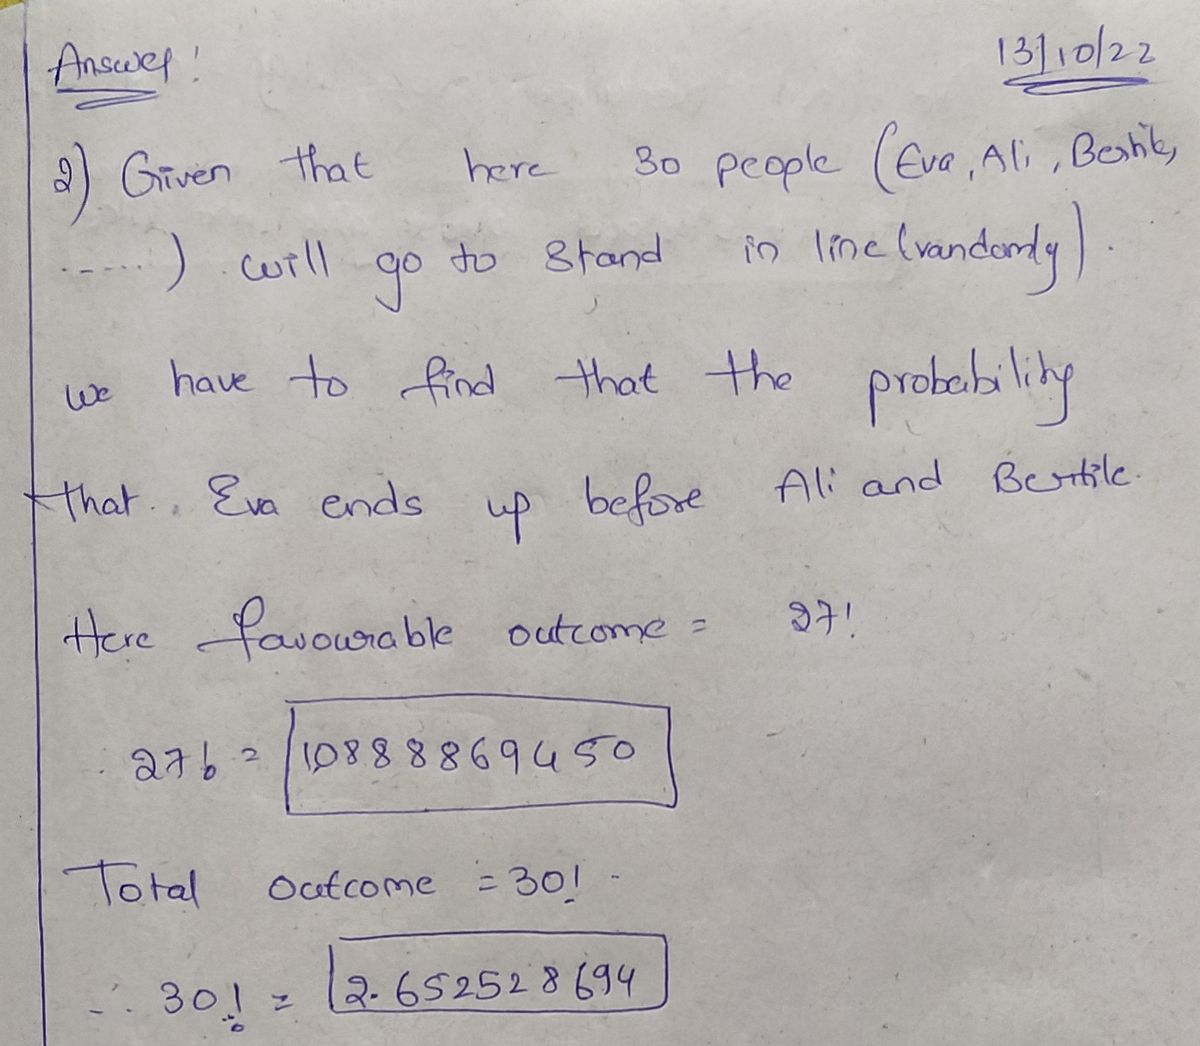 Answer! 13/10/22
2) Given that here 30 people (Eva, Ali, Bertile,
......) will go to stand in line (randomly).
we have to find that the probability
that.. Eva ends up before Ali and Bertile.
Here favourable outcome = 27!
27! = 10888869450
Total outcome = 30!
∴ 30! = 2.652528694